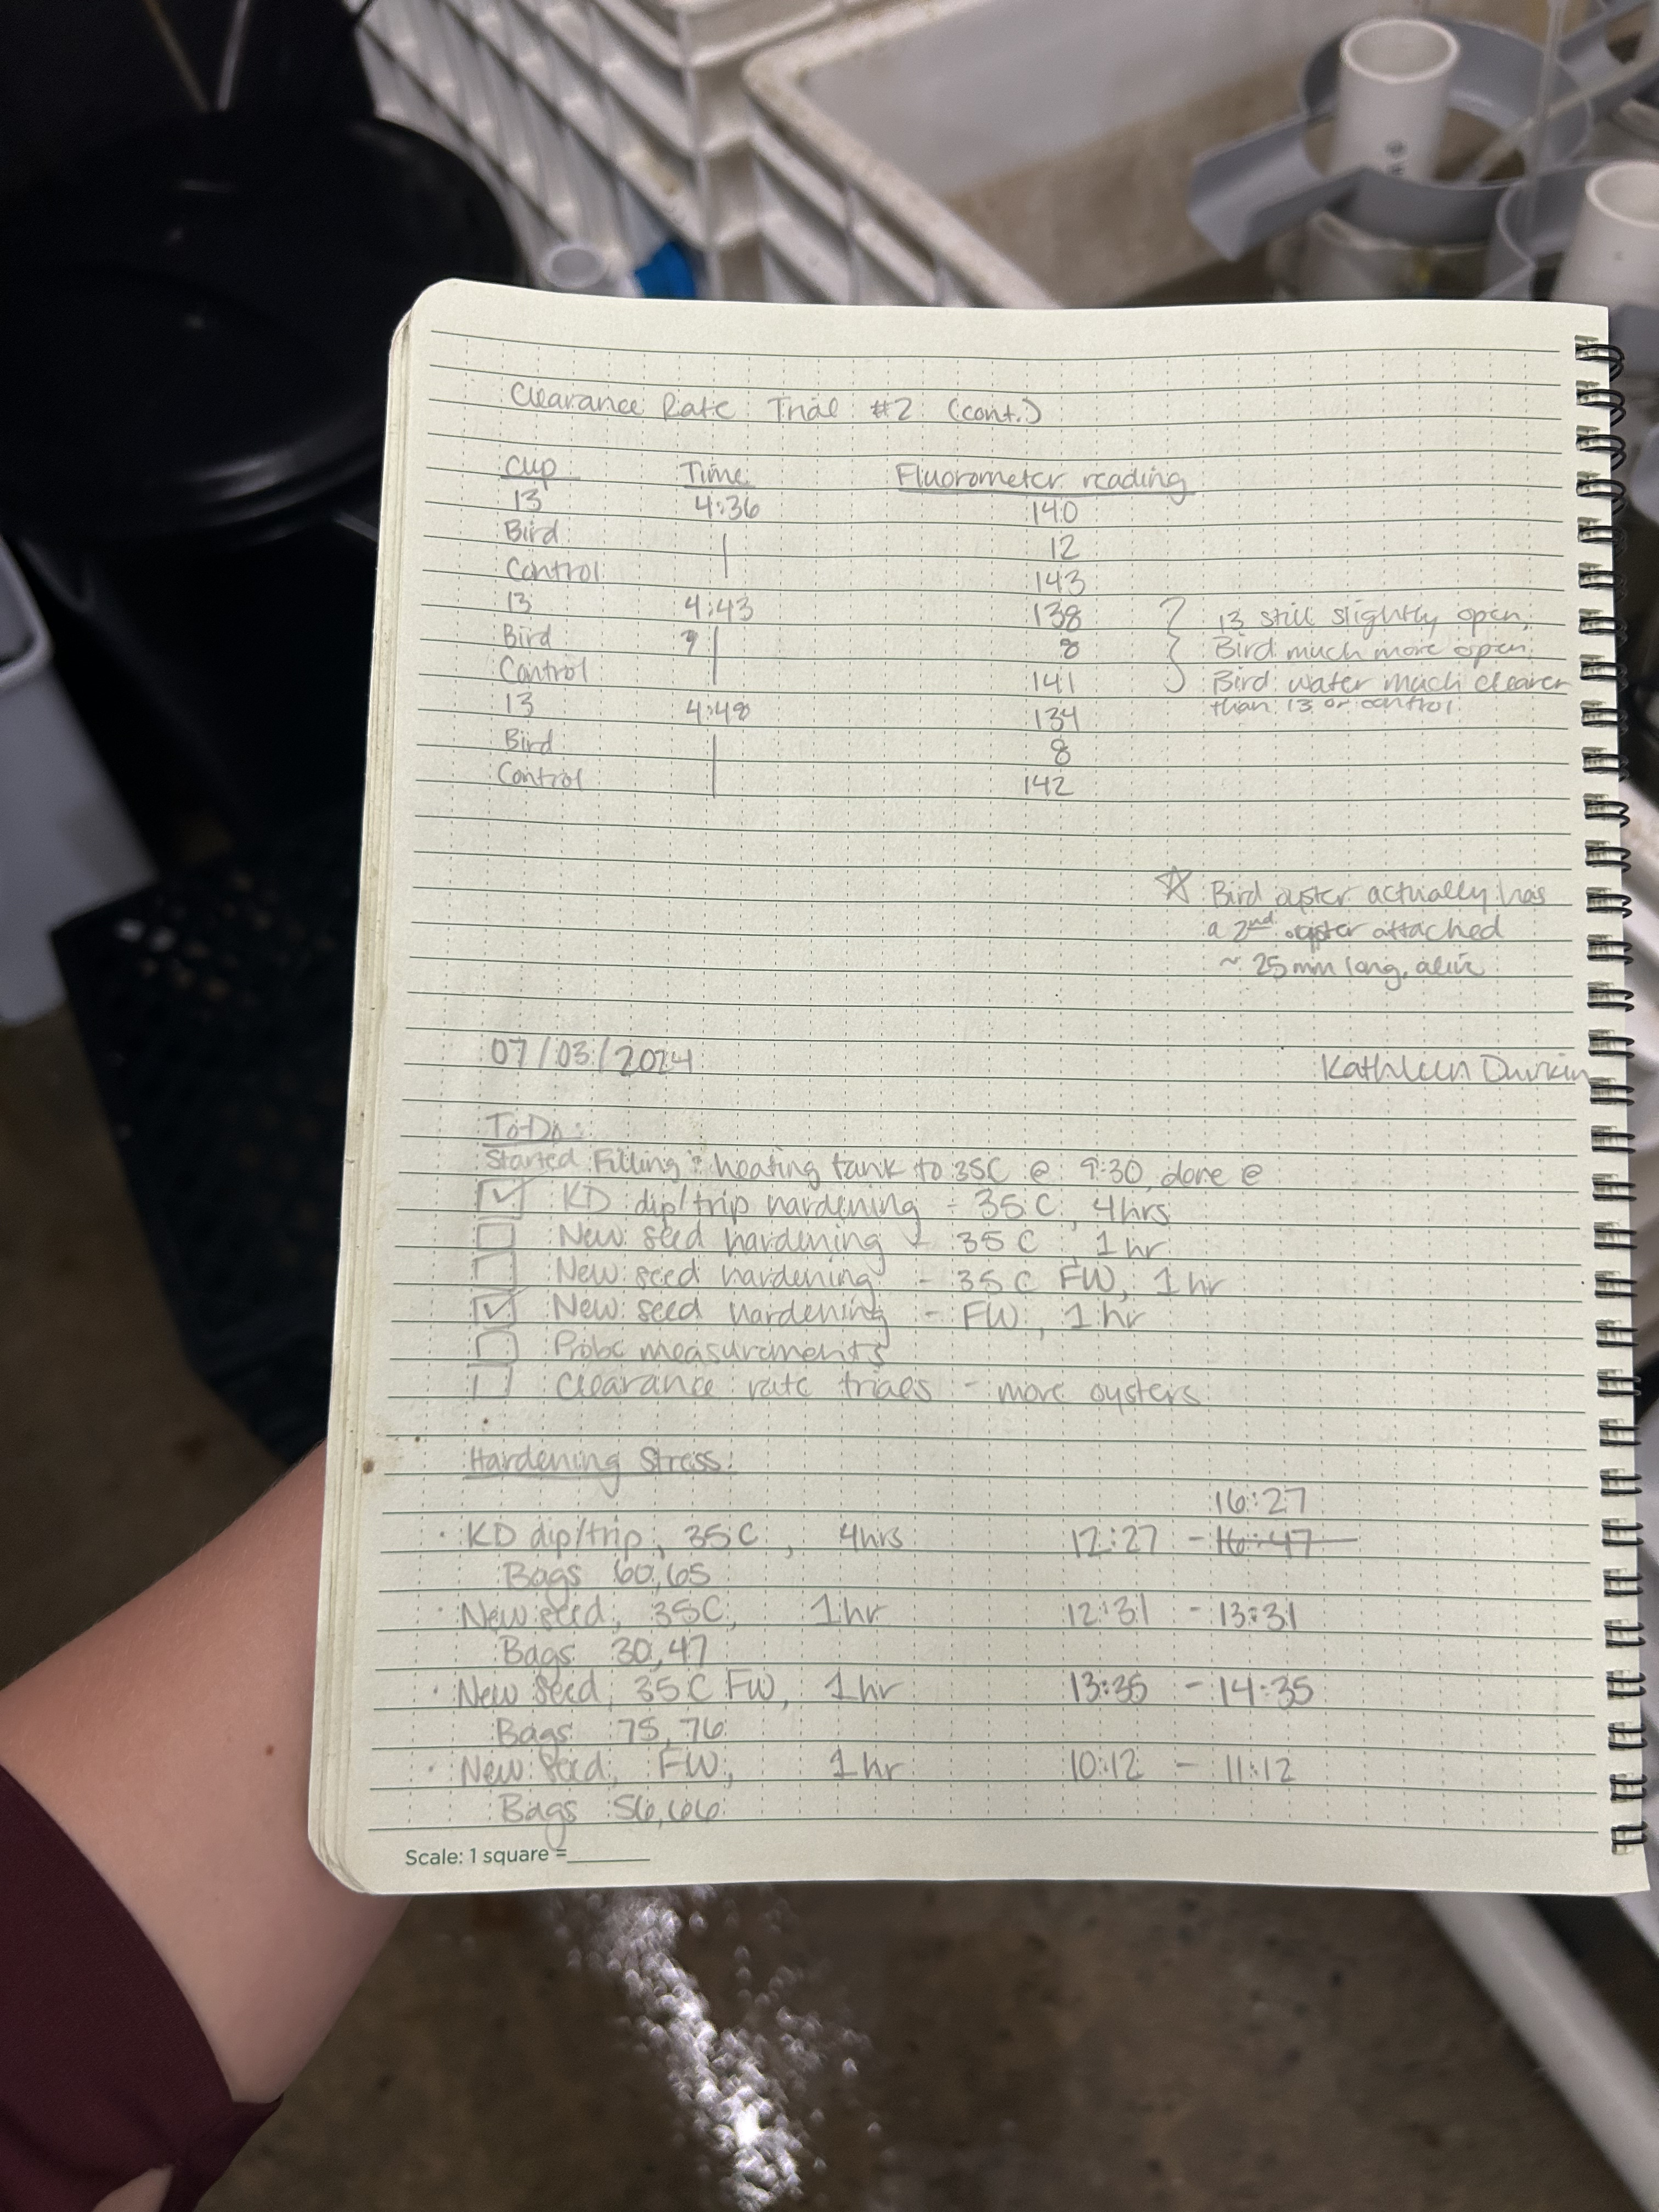 Clearance Rate Trial #2 (cont.)
Cup Time Fluorometer reading
13 4:36 140
Bird 12
Control 143
13 4:43 138 13 still slightly open,
Bird 8 Bird much more open,
Control 141 Bird water much clearer
than 13 or control
13 4:48 134
Bird 8
Control 142
☆ Bird oyster actually has
a 2nd oyster attached
~ 25mm long, alive
07/03/2024 Kathleen Durkin
To-Do:
Started Filling & heating tank to 35C @ 9:30, done @
☑ KD dip/trip hardening - 35C, 4hrs
☐ New seed hardening - 35C, 1 hr
☐ New seed hardening - 35C FW, 1 hr
☑ New seed hardening - FW, 1 hr
☐ Probe measurements
☐ Clearance rate trials - more oysters
Hardening Stress:
16:27
· KD dip/trip, 35C, 4hrs 12:27 - 16:47
Bags 60,65
· New seed, 35C, 1hr 12:31 - 13:31
Bags 30,47
· New seed, 35C FW, 1hr 13:35 - 14:35
Bags 75, 76
· New seed, FW, 1hr 10:12 - 11:12
Bags 56,66
Scale: 1 square =